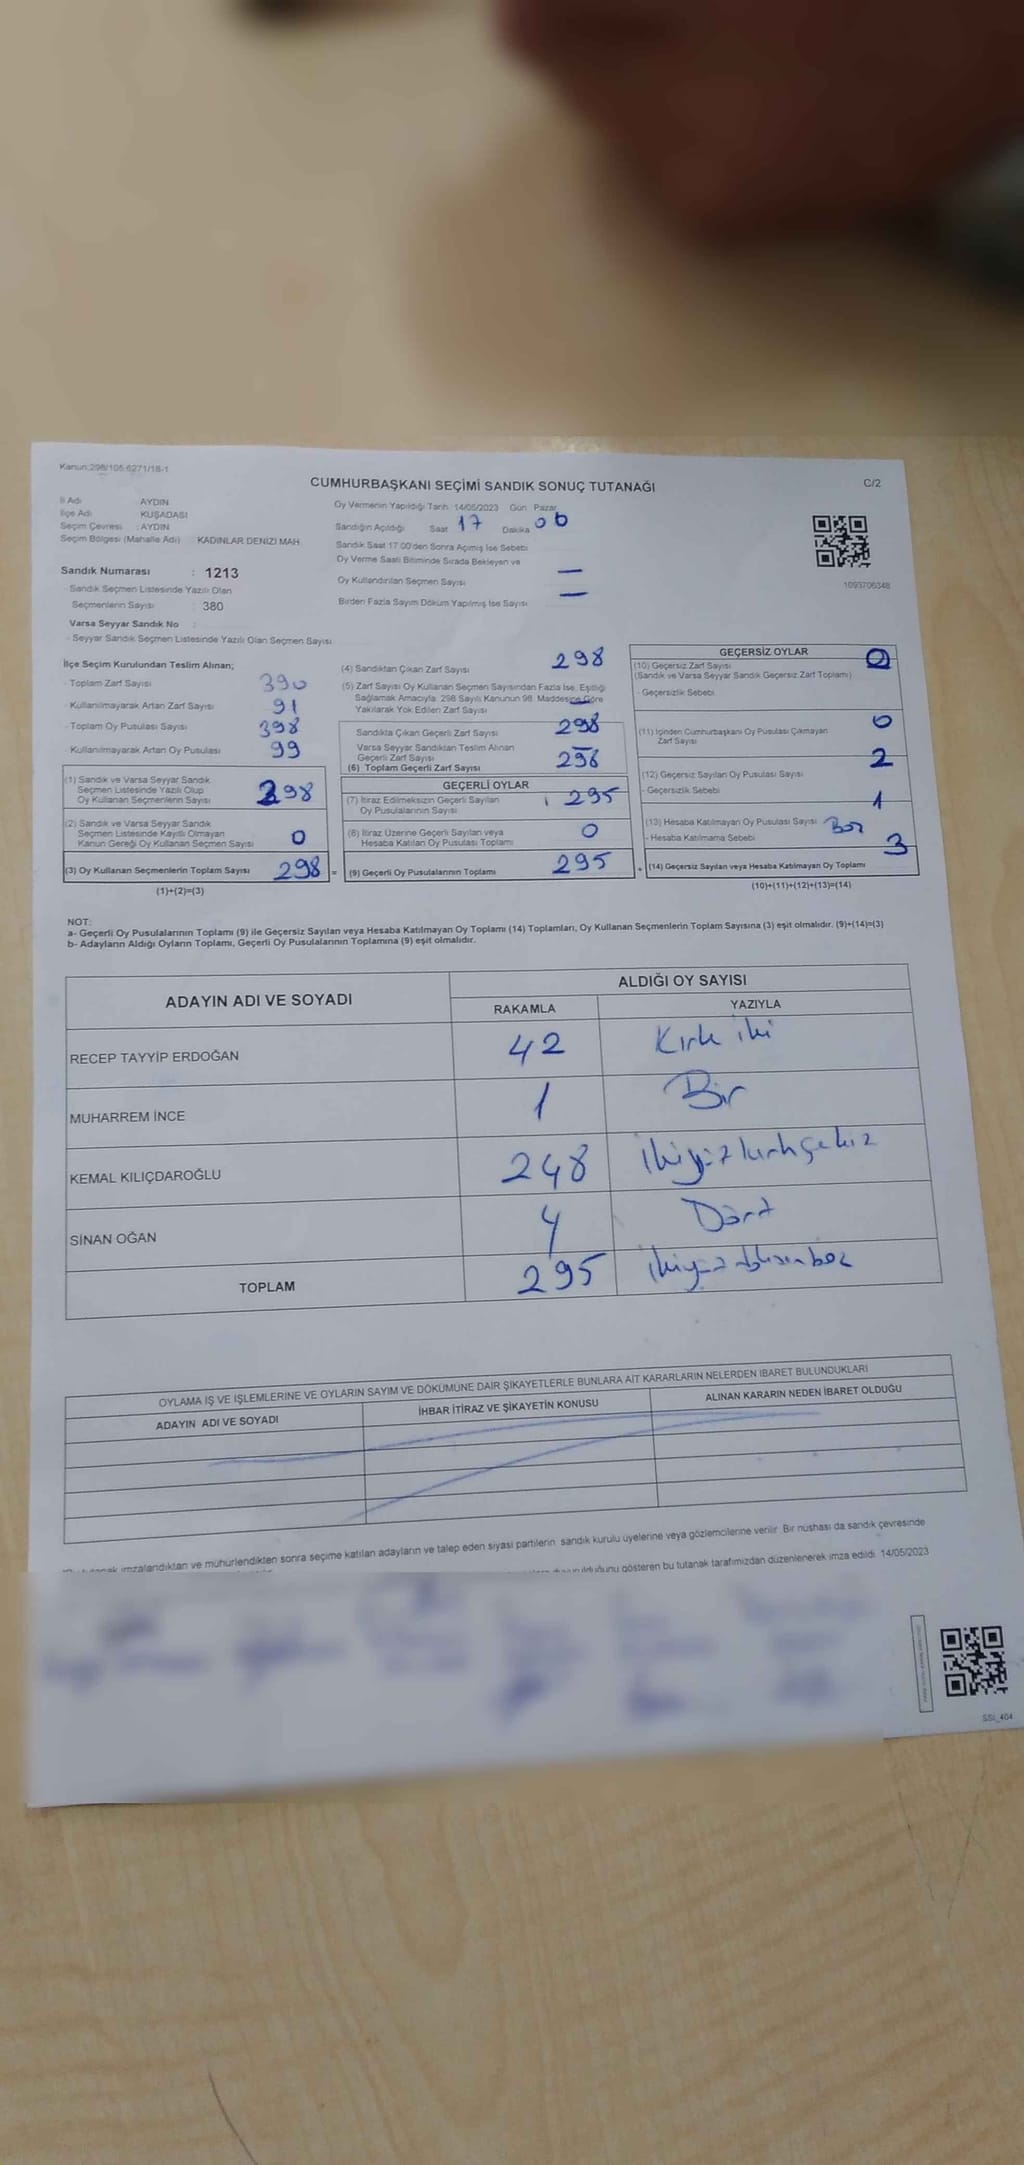 Kanun:298/105 6271/18-1
CUMHURBAŞKANI SEÇİMİ SANDIK SONUÇ TUTANAĞI
C/2
İl Adı : AYDIN
İlçe Adı : KUŞADASI
Seçim Çevresi : AYDIN
Seçim Bölgesi (Mahalle Adı) KADINLAR DENİZİ MAH.
Sandık Numarası : 1213
- Sandık Seçmen Listesinde Yazılı Olan
Seçmenlerin Sayısı : 380
Varsa Seyyar Sandık No :
- Seyyar Sandık Seçmen Listesinde Yazılı Olan Seçmen Sayısı
Oy Vermenin Yapıldığı Tarih 14/05/2023 Gün Pazar
Sandığın Açıldığı Saat 17 Dakika 06
Sandık Saat 17.00'den Sonra Açılmış İse Sebebi
Oy Verme Saati Bitiminde Sırada Bekleyen ve
Oy Kullandırılan Seçmen Sayısı —
Birden Fazla Sayım Döküm Yapılmış İse Sayısı —
1093706348
İlçe Seçim Kurulundan Teslim Alınan;
- Toplam Zarf Sayısı 390
- Kullanılmayarak Artan Zarf Sayısı 91
- Toplam Oy Pusulası Sayısı 398
- Kullanılmayarak Artan Oy Pusulası 99
(1) Sandık ve Varsa Seyyar Sandık
Seçmen Listesinde Yazılı Olup
Oy Kullanan Seçmenlerin Sayısı 298
(2) Sandık ve Varsa Seyyar Sandık
Seçmen Listesinde Kayıtlı Olmayan
Kanun Gereği Oy Kullanan Seçmen Sayısı 0
(3) Oy Kullanan Seçmenlerin Toplam Sayısı 298 =
(1)+(2)=(3)
(4) Sandıktan Çıkan Zarf Sayısı 298
(5) Zarf Sayısı Oy Kullanan Seçmen Sayısından Fazla İse, Eşitliği
Sağlamak Amacıyla: 298 Sayılı Kanunun 98. Maddesine Göre
Yakılarak Yok Edilen Zarf Sayısı —
Sandıkta Çıkan Geçerli Zarf Sayısı 298
Varsa Seyyar Sandıktan Teslim Alınan
Geçerli Zarf Sayısı —
(6) Toplam Geçerli Zarf Sayısı 298
GEÇERLİ OYLAR
(7) İtiraz Edilmeksizin Geçerli Sayılan
Oy Pusulalarının Sayısı 295
(8) İtiraz Üzerine Geçerli Sayılan veya
Hesaba Katılan Oy Pusulası Toplamı 0
(9) Geçerli Oy Pusulalarının Toplamı 295 +
GEÇERSİZ OYLAR
(10) Geçersiz Zarf Sayısı 0
(Sandık ve Varsa Seyyar Sandık Geçersiz Zarf Toplamı)
- Geçersizlik Sebebi
(11) İçinden Cumhurbaşkanı Oy Pusulası Çıkmayan
Zarf Sayısı 0
(12) Geçersiz Sayılan Oy Pusulası Sayısı 2
- Geçersizlik Sebebi
(13) Hesaba Katılmayan Oy Pusulası Sayısı 1
- Hesaba Katılmama Sebebi Boş
(14) Geçersiz Sayılan veya Hesaba Katılmayan Oy Toplamı 3
(10)+(11)+(12)+(13)=(14)
NOT:
a- Geçerli Oy Pusulalarının Toplamı (9) ile Geçersiz Sayılan veya Hesaba Katılmayan Oy Toplamı (14) Toplamları, Oy Kullanan Seçmenlerin Toplam Sayısına (3) eşit olmalıdır. (9)+(14)=(3)
b- Adayların Aldığı Oyların Toplamı, Geçerli Oy Pusulalarının Toplamına (9) eşit olmalıdır.
ADAYIN ADI VE SOYADI ALDIĞI OY SAYISI
RAKAMLA YAZIYLA
RECEP TAYYİP ERDOĞAN 42 Kırk iki
MUHARREM İNCE 1 Bir
KEMAL KILIÇDAROĞLU 248 İkiyüz kırksekiz
SİNAN OĞAN 4 Dört
TOPLAM 295 İkiyüz doksan beş
OYLAMA İŞ VE İŞLEMLERİNE VE OYLARIN SAYIM VE DÖKÜMÜNE DAİR ŞİKAYETLERLE BUNLARA AİT KARARLARIN NELERDEN İBARET BULUNDUKLARI
ADAYIN ADI VE SOYADI İHBAR İTİRAZ VE ŞİKAYETİN KONUSU ALINAN KARARIN NEDEN İBARET OLDUĞU
imzalandıktan ve mühürlendikten sonra seçime katılan adayların ve talep eden siyasi partilerin sandık kurulu üyelerine veya gözlemcilerine verilir. Bir nüshası da sandık çevresinde
gösteren bu tutanak tarafımızdan düzenlenerek imza edildi. 14/05/2023
SSI_404